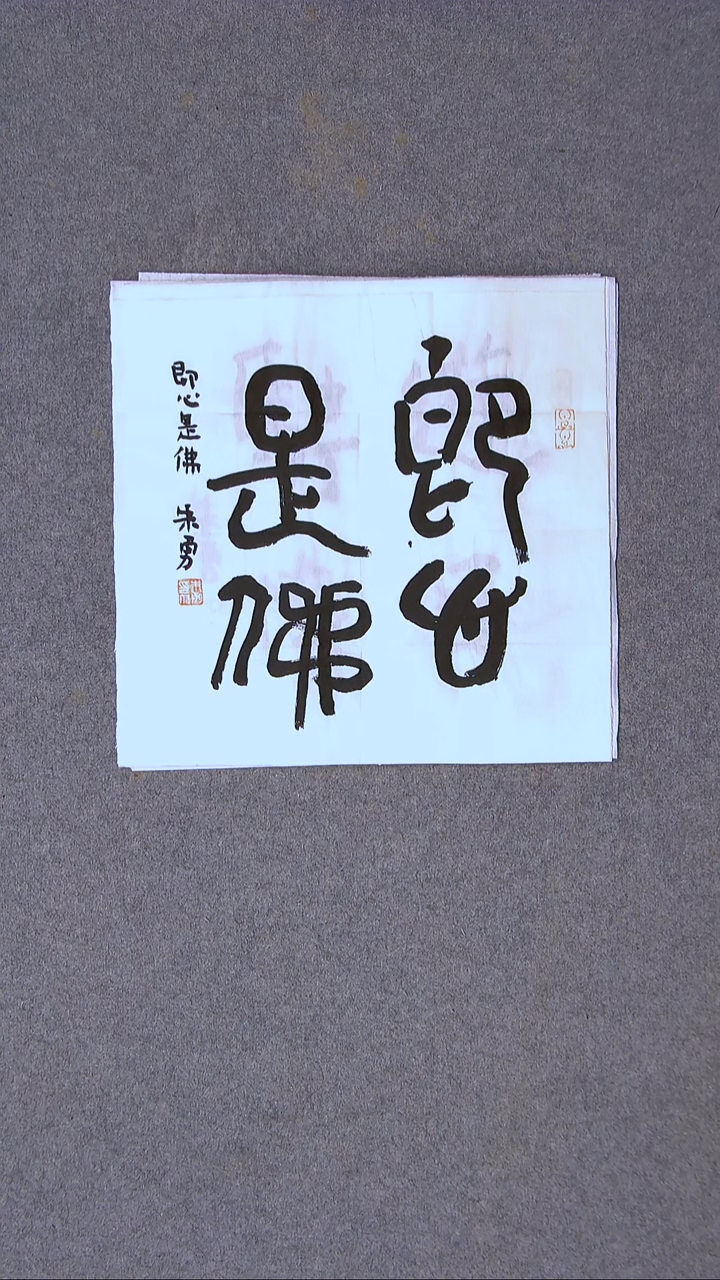 即心
是佛
即心是佛 朱勇